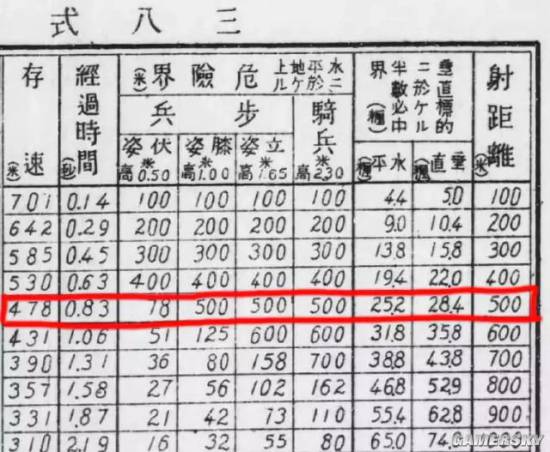 三八式
射距離(米)
垂直標的
ニ於ケル
半數必中
界(糎)
垂直(糎)
水平(糎)
水平地上
ニ於ケル
危險界(米)
騎兵
高2.30米
步兵
立姿
高1.65米
膝姿
高1.00米
伏姿
高0.50米
經過時間(秒)
存速(米)
701 0.14 100 100 100 100 4.4 5.0 100
642 0.29 200 200 200 200 9.0 10.4 200
585 0.45 300 300 300 300 13.8 15.8 300
530 0.63 400 400 400 400 19.4 22.0 400
478 0.83 78 500 500 500 25.2 28.4 500
431 1.06 51 125 600 600 31.8 35.8 600
390 1.31 36 80 158 700 38.8 43.8 700
357 1.58 27 56 102 162 46.8 52.9 800
331 1.87 21 42 73 110 55.4 62.8 900
310 2.19 16 32 55 80 65.0
GAMERSKY